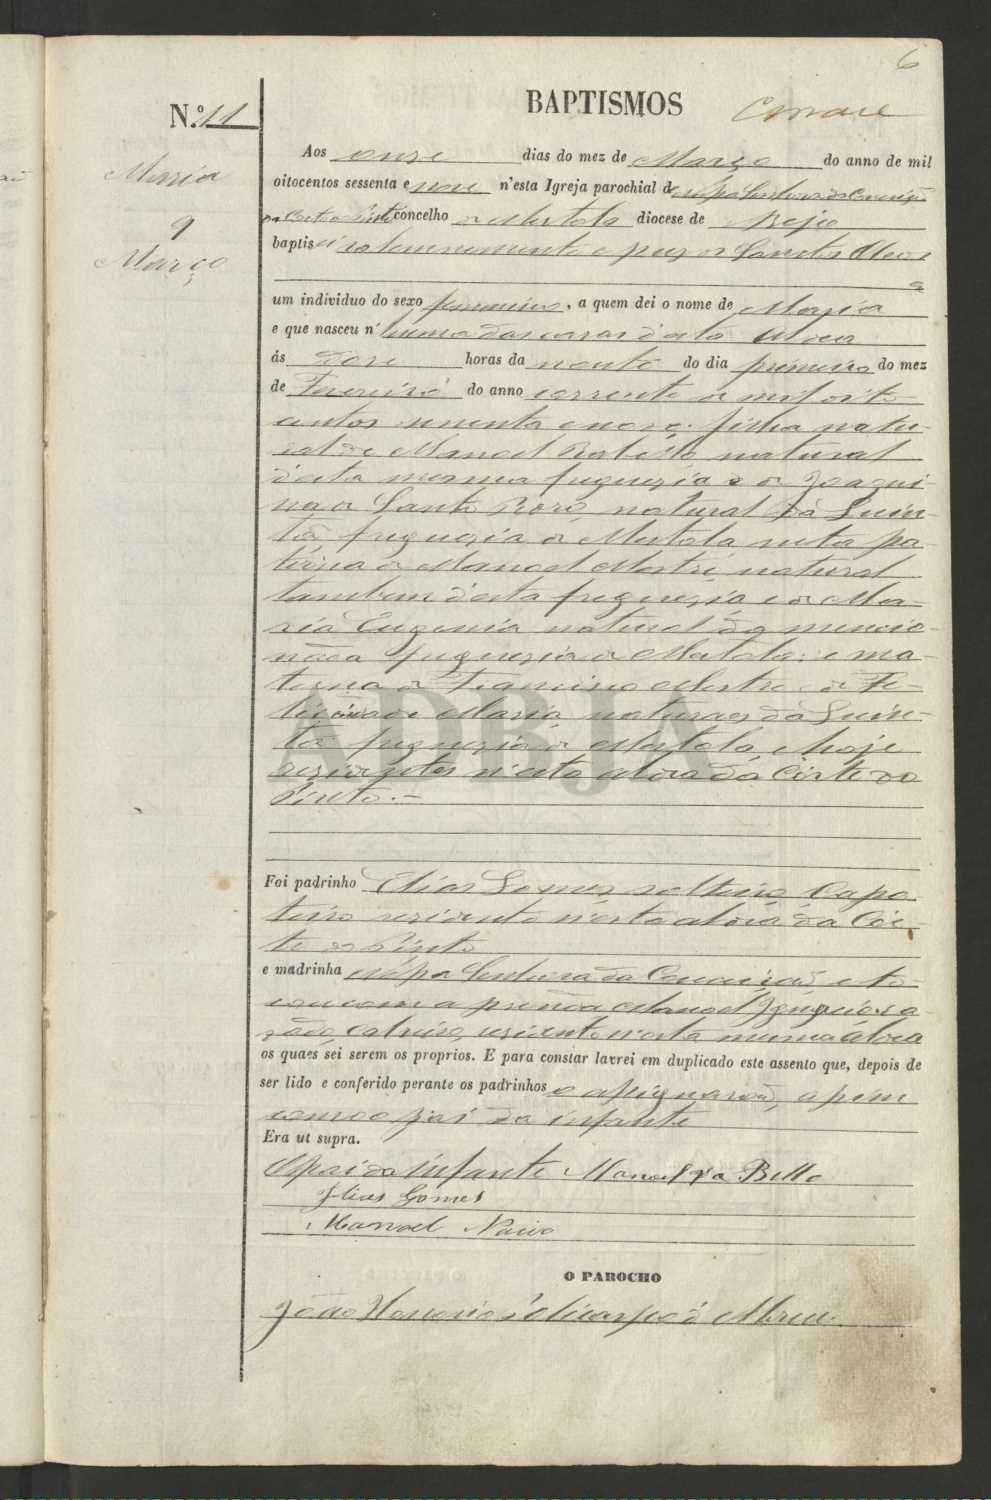 6
BAPTISMOS
N.º 11
Maria
9
Março
Aos onze dias do mez de Março do anno de mil
oitocentos sessenta e nove n'esta Igreja parochial de Nossa Senhora da Conceição
da Corte do Pinto concelho de Mertola diocese de Beja
baptisei solemnemente e puz os Santos Oleos
a
um individuo do sexo femenino, a quem dei o nome de Maria
e que nasceu n'huma das casas d'esta Aldea
ás doze horas da noute do dia primeiro do mez
de Fevereiro do anno corrente de mil oito
centos secenta e nove: filha natu-
ral de Manoel natural
d'esta mesma freguezia e de Joaqui-
na natural da Quin-
tã freguezia de Mertola neta pa-
terna de Manoel Mestre natural
tambem d'esta freguezia e de Ma-
ria Eugenia natural da mencio-
nada freguezia de Mertola: e ma-
terna de Francisco Mestre e de Fe-
licidade Maria naturaes da Quin-
tã freguezia de Mertola, e hoje
rezidentes n'esta aldea da Corte do
Pinto.-
Foi padrinho Elias Gomes solteiro Çapa-
teiro rezidente n'esta aldea da Cor-
te do Pinto
e madrinha Nossa Senhora da Conceição e to-
cou com a prenda Manoel
rezidente n'esta mesma aldea
os quaes sei serem os proprios. E para constar lavrei em duplicado este assento que, depois de
ser lido e conferido perante os padrinhos o assignarão, assim
como o pai da infante
Era ut supra.
O pai da infante Manoel
Elias Gomes
Manoel
O PAROCHO
João Honorio Policarpo d'Abreu
ADBJA